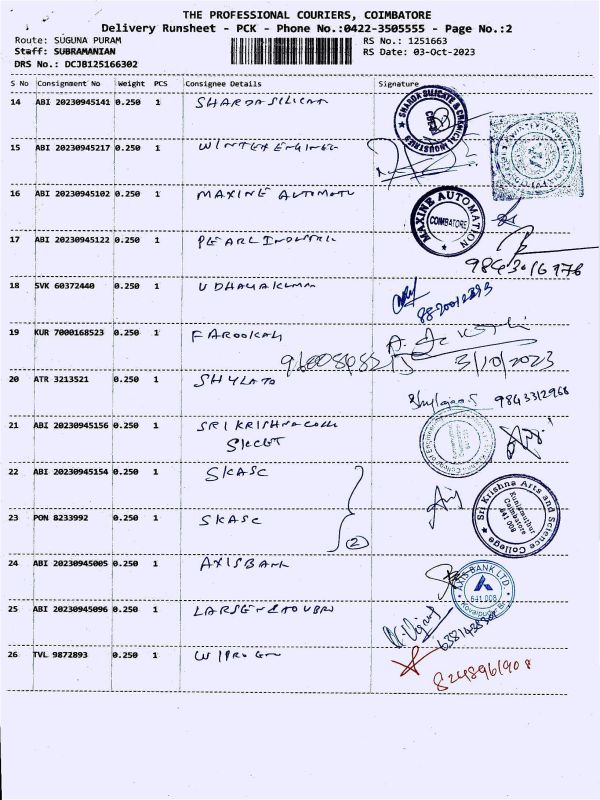 THE PROFESSIONAL COURIERS, COIMBATORE
Delivery Runsheet - PCK - Phone No.:0422-3505555 - Page No.:2
Route: SUGUNA PURAM RS No.: 1251663
Staff: SUBRAMANIAN RS Date: 03-Oct-2023
DRS No.: DCJB125166302
S No Consignment No Weight PCS Consignee Details Signature
14 ABI 20230945141 0.250 1 SHARDA SILICAT
SHARDA SILICATE & CHEMICAL INDUSTRIES
15 ABI 20230945217 0.250 1 WINTER ENGINEE
16 ABI 20230945102 0.250 1 MAXINE AUTOMATI
MAXINE AUTOMATION COIMBATORE
17 ABI 20230945122 0.250 1 PEARL INDUSTRI
98430/6976
18 SVK 60372440 0.250 1 UDHAYAKUMA
19 KUR 7000168523 0.250 1 FAROOKALI
3/10/2023
20 ATR 3213521 0.250 1 SHYLA TO
9843312968
21 ABI 20230945156 0.250 1 SRI KRISHNA COLL
SKCET
22 ABI 20230945154 0.250 1 SKASC
23 PON 8233992 0.250 1 SKASC
(2)
Sri Krishna Arts and Science College
Kuniamuthur
Coimbatore
641 008
24 ABI 20230945005 0.250 1 AXIS BANK
AXIS BANK LTD.
641 008
25 ABI 20230945096 0.250 1 LARSEN & TOUBRO
26 TVL 9872893 0.250 1 WIPRO GE
8248961908